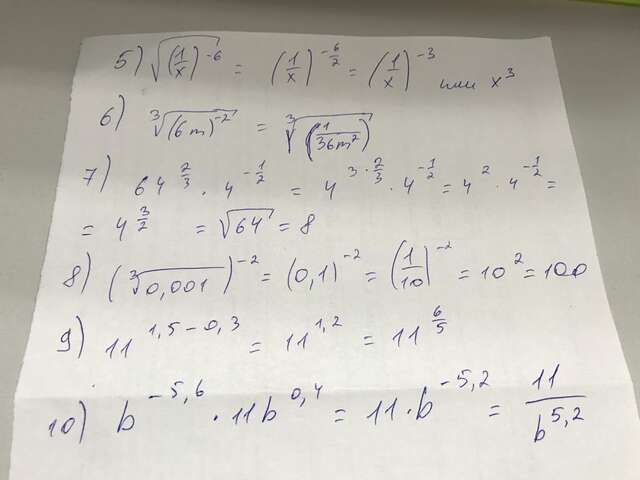 5) √((1/x)^-6) = (1/x)^(-6/2) = (1/x)^-3 или x^3
6) ∛((6m)^-2) = ∛((1/36m^2))
7) 64^(2/3) · 4^(-1/2) = 4^(3·2/3) · 4^(-1/2) = 4^2 · 4^(-1/2) =
= 4^(3/2) = √64 = 8
8) (∛0,001)^-2 = (0,1)^-2 = (1/10)^-2 = 10^2 = 100
9) 11^(1,5-0,3) = 11^(1,2) = 11^(6/5)
10) b^(-5,6) · 11b^(0,4) = 11·b^(-5,2) = 11/b^(5,2)